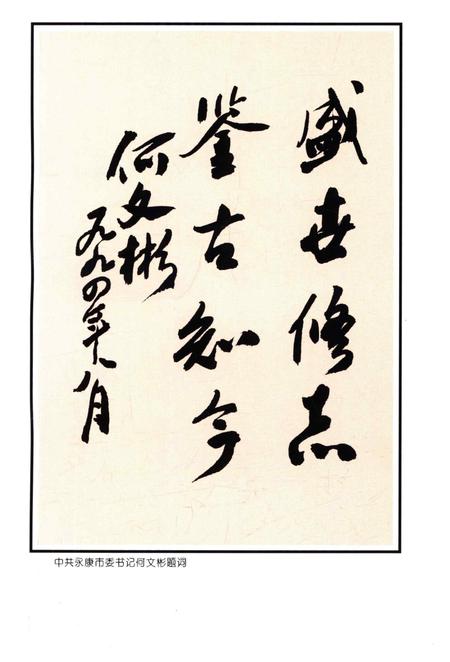 盛世修志
鉴古知今
何文彬
一九九四年十八月
中共永康市委书记何文彬题词